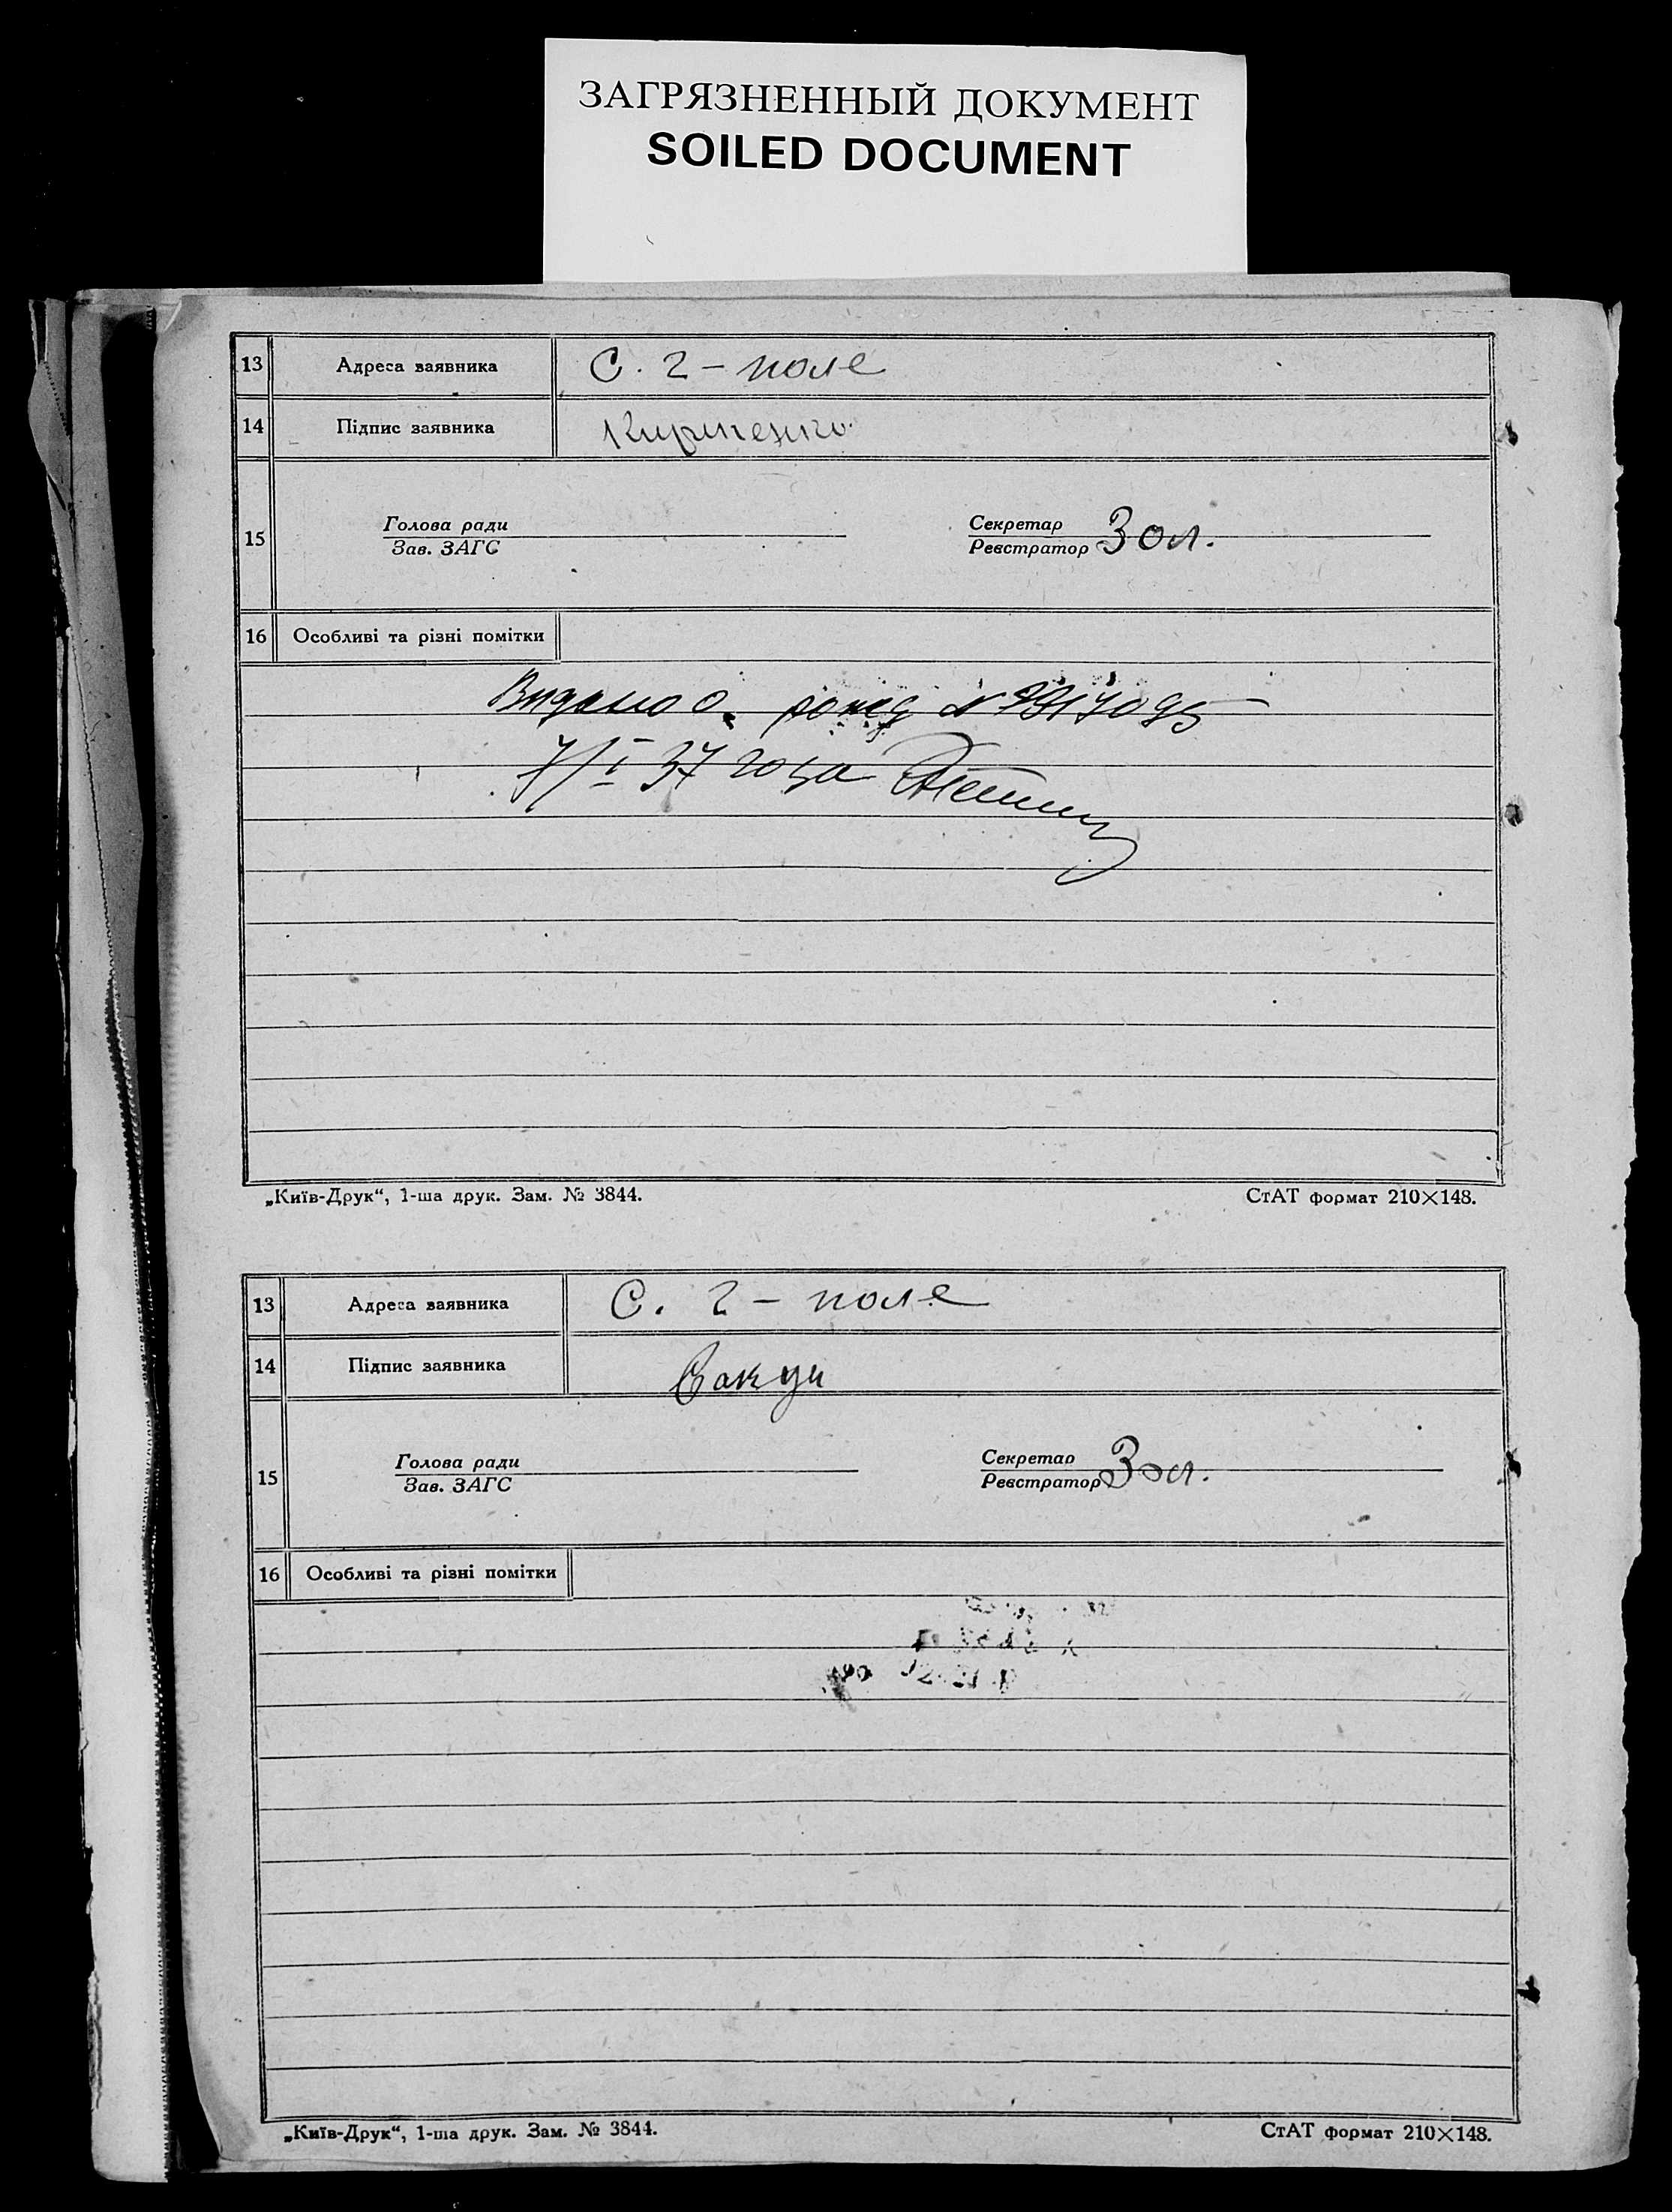 ЗАГРЯЗНЕННЫЙ ДОКУМЕНТ
SOILED DOCUMENT
13 Адреса заявника С. 2 – поле
14 Підпис заявника Кириченко
Голова ради Секретар
15 Зол.
Зав. ЗАГС Реєстратор
16 Особливі та різні помітки
Видано
7/I 37 года
„Київ-Друк“, 1-ша друк. Зам. № 3844. СтАТ формат 210×148.
13 Адреса заявника С. 2 – поле
14 Підпис заявника
Голова ради Секретар
15 Зол.
Зав. ЗАГС Реєстратор
16 Особливі та різні помітки
„Київ-Друк“, 1-ша друк. Зам. № 3844. СтАТ формат 210×148.